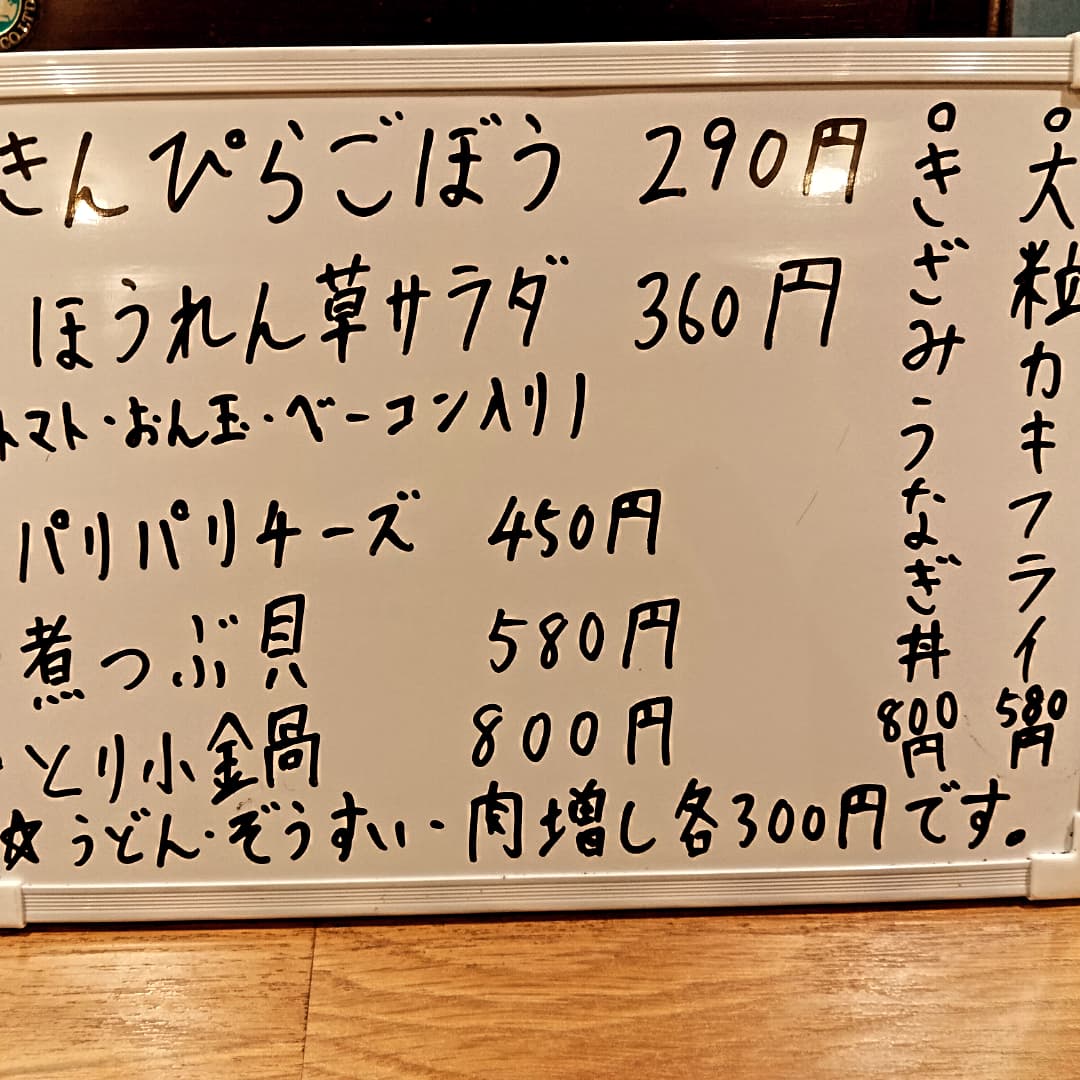 きんぴらごぼう 290円
ほうれん草サラダ 360円
トマト・おん玉・ベーコン入り♪
パリパリチーズ 450円
煮つぶ貝 580円
とり小金鍋 800円
☆うどん・ぞうすい・肉増し各300円です。
大粒カキフライ 580円
きざみうなぎ丼 800円